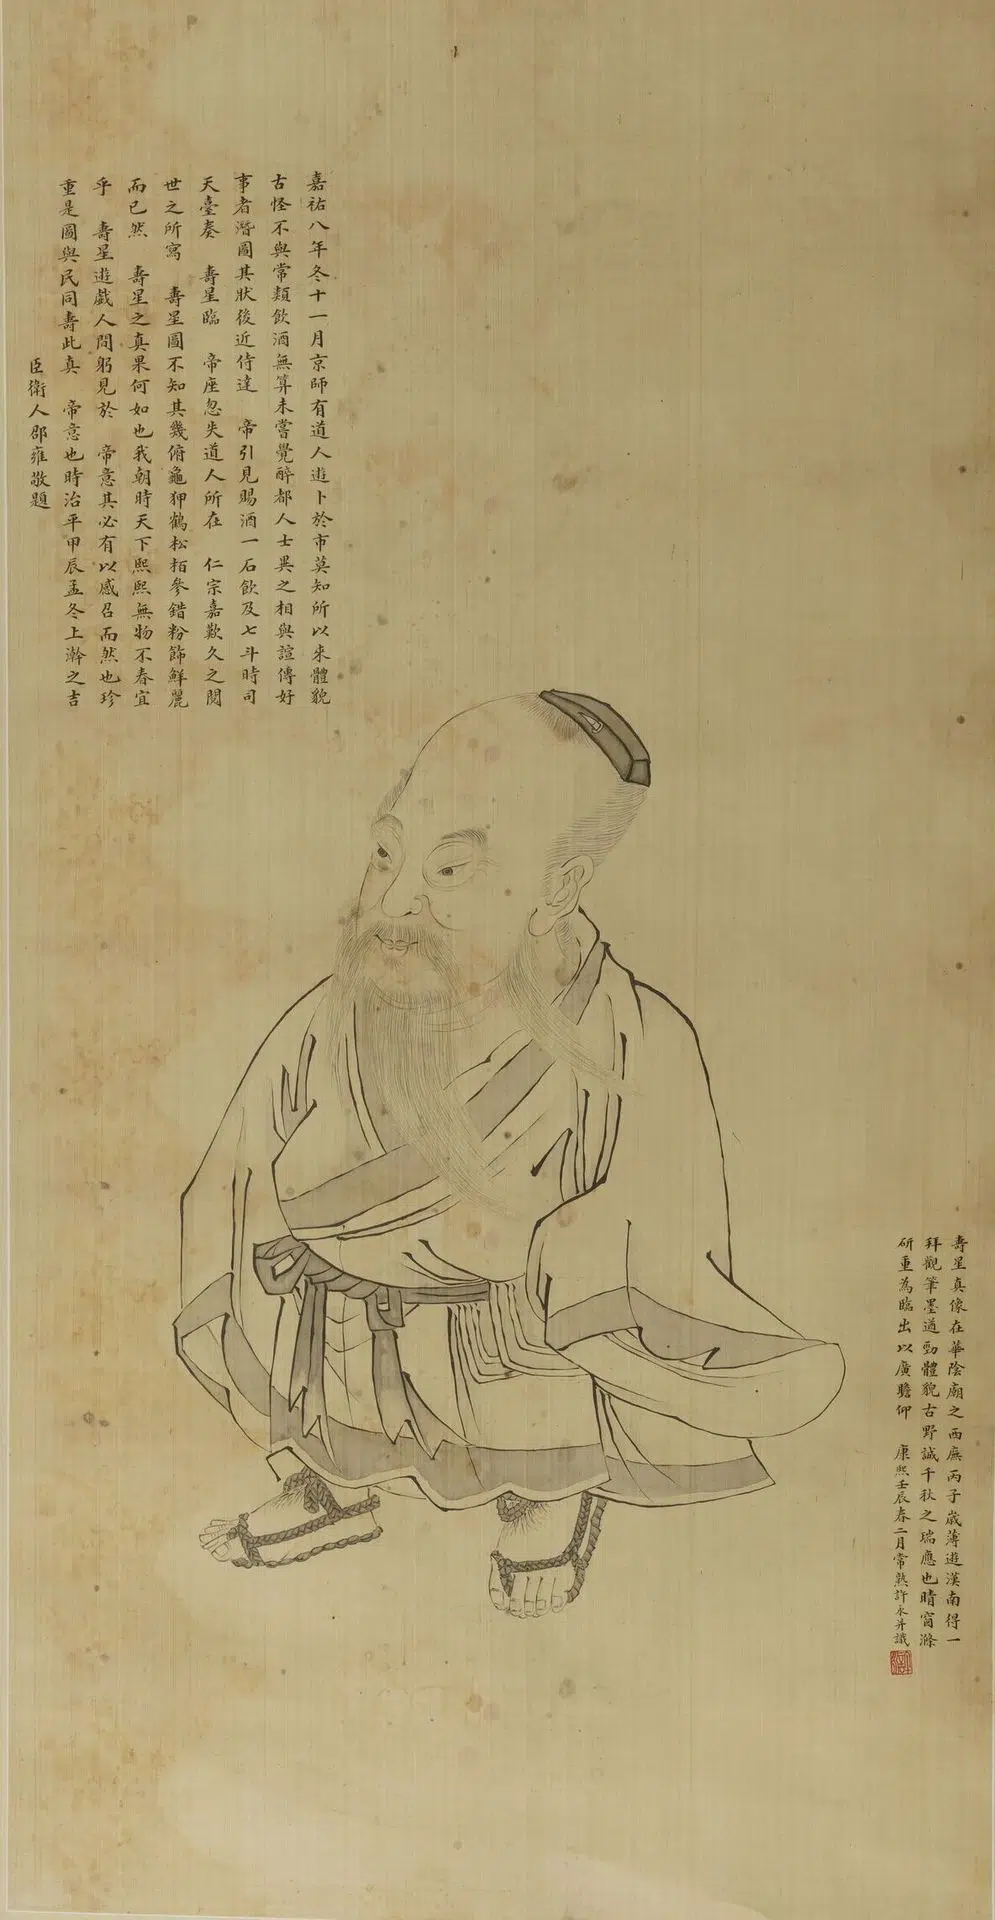 嘉祐八年冬十一月京師有道人遊卜於市莫知所以来體貌
古怪不與常類飲酒無算未嘗覺醉都人士異之相與諠傳好
事者潛圖其狀後近侍達 帝引見賜酒一石飲及七斗時司
天臺奏 壽星臨 帝座忽失道人所在 仁宗嘉歎久之閱
世之所寫 壽星圖不知其幾俯龜狎鶴松栢參錯粉飾鮮麗
而已然 壽星之真果何如也我朝時天下熙熙無物不春宜
乎 壽星遊戲人間躬見於 帝意其必有以感召而然也珍
重是圖與民同壽此真 帝意也時治平甲辰孟冬上澣之吉
臣衛人邵雍敬題
壽星真像在華陰廟之西廡丙子歲薄遊漢南得一
拜觀筆墨遒勁體貌古野誠千秋之瑞應也晴窗滌
研重為臨出以廣瞻仰 康熙壬辰春二月常熟許永并識